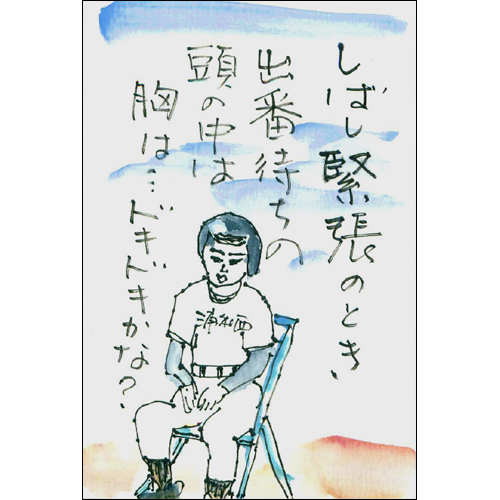 しばし緊張のとき
出番待ちの
頭の中は
胸は…ドギドキかな?
浦和西